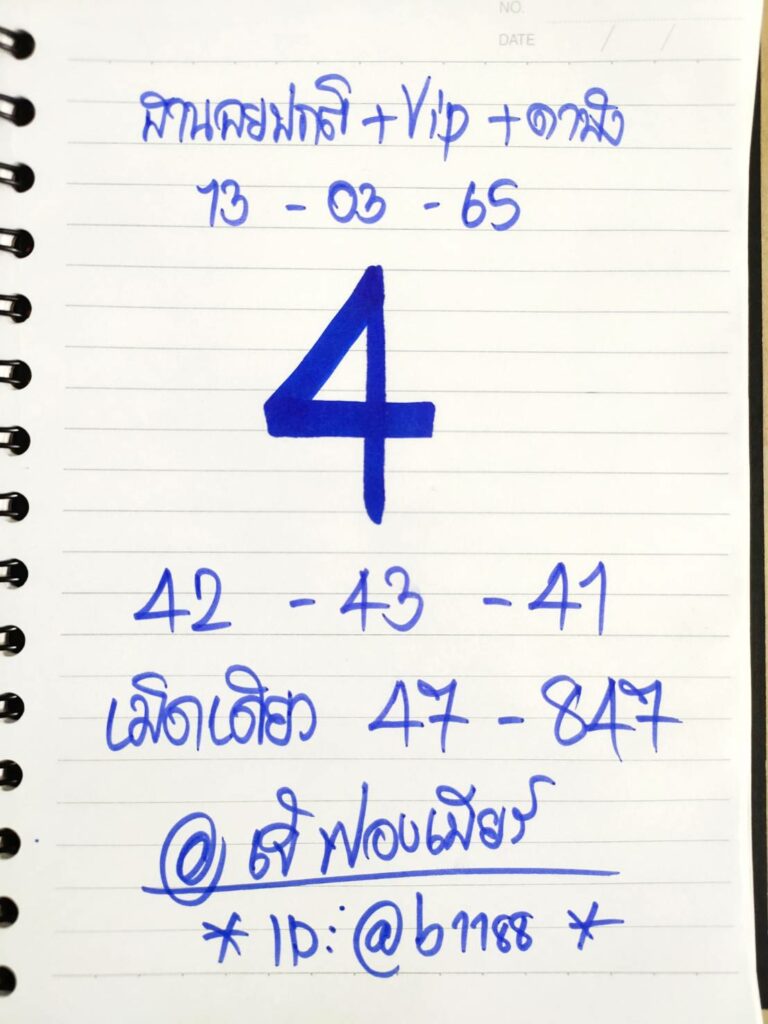 NO.
DATE / /
ฮานอยปกติ + Vip + ดาวสิง
13 - 03 - 65
4
42 - 43 - 41
เม็ดเดียว 47 - 847
@ เจ๊ ฟองเบียร์
* ID: @b1188 *